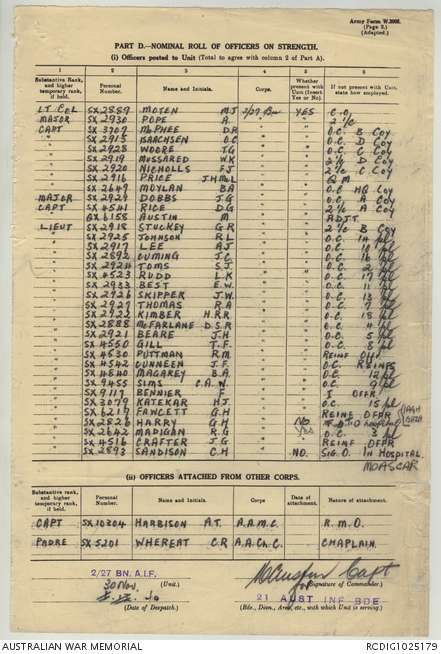 Army Form W.3008.
(Page 2.)
(Adapted.)
PART D.—NOMINAL ROLL OF OFFICERS ON STRENGTH.
(i) Officers posted to Unit (Total to agree with column 2 of Part A).
1 2 3 4 5 6
Substantive Rank, and higher temporary rank, if held. Personal Number. Name and Initials. Corps Whether present with Unit (Insert Yes or No). If not present with Unit, state how employed.
LT COL SX2889 MOTEN M.J 2/27 Bn YES C.O.
MAJOR SX2930 POPE A. " " 2 i/c
CAPT SX3709 McPHEE D.R " " O.C. B Coy
" SX2915 ISAACHSEN O.C " " O.C. D Coy
" SX2928 WOORE T.G " " O.C. C Coy
" SX2919 MUSSARED W.K " " 2 i/c D Coy
" SX2920 NICHOLLS F.J " " 2 i/c C Coy
" SX2916 PRICE J.H.McL " " Q M
" SX2649 MOYLAN B.A " " O.C HQ Coy
MAJOR SX2929 DOBBS J.G " " O.C A Coy
CAPT SX4541 RICE D.G " " 2 i/c A Coy
" QX6158 AUSTIN M " " ADJT.
LIEUT SX2918 STUCKEY G.R " " 2 i/c B Coy
" SX2925 JOHNSON R.L " "
" SX2917 LEE A.J " "
" SX2892 CUMING J.C " " O.C. 16 pl
" TOMS S.J " "
" SX4523 RUDD L.K " " O.C. 17 pl
" SX2933 BEST E.W " " O.C. 11 pl
" SX2926 SKIPPER J.W. " " O.C. 13 pl
" SX2927 THOMAS R.A " " O.C. 7 pl
" SX2922 KIMBER H.R.R " " O.C. 18 pl
" SX2888 McFARLANE D.S.R " " O.C. 4 pl
" SX2921 BEARE J.H " " O.C. 5 pl
" SX4550 GILL T.F. " " O.C. 8 pl
" SX4530 PUTTMAN R.M. " " REINF OFF
" SX4542 GUNNEEN J.F " " O.C. REINFS
" SX4840 MAGAREY B.A " " O.C. 12 pl
" SX9455 SIMS C.A.W. " " O.C. 9 pl
" SX9117 BENNIER F " " I OFFR
" SX3079 KATEKAR H.J " " O.C. 15 pl
" SX6217 FAWCETT G.H " " REINF OFFR
" SX2826 HARRY G.H " NO
" SX2642 MADIGAN R.G " Yes O.C. 3 pl
" SX4516 CRAFTER J.G " " REINF OFFR
" SX2893 SANDISON C.H " NO. SIG.O. IN HOSPITAL.
MOASCAR
(ii) OFFICERS ATTACHED FROM OTHER CORPS.
Substantive rank, and higher temporary rank, if held. Personal Number. Name and Initials. Corps Date of attachment. Nature of attachment.
CAPT SX10304 HARBISON A.T. A.A.M.C. R.M.O.
PADRE SX5201 WHEREAT C.R A.A.Ch.C. CHAPLAIN.
2/27 BN. A.I.F. (Unit.) Capt
(Signature of Commander.)
30 Nov.
(Date of Despatch.) 21 AUST INF BDE
(Bde., Divn., Area, etc., with which Unit is serving.)
AUSTRALIAN WAR MEMORIAL RCDIG1025179